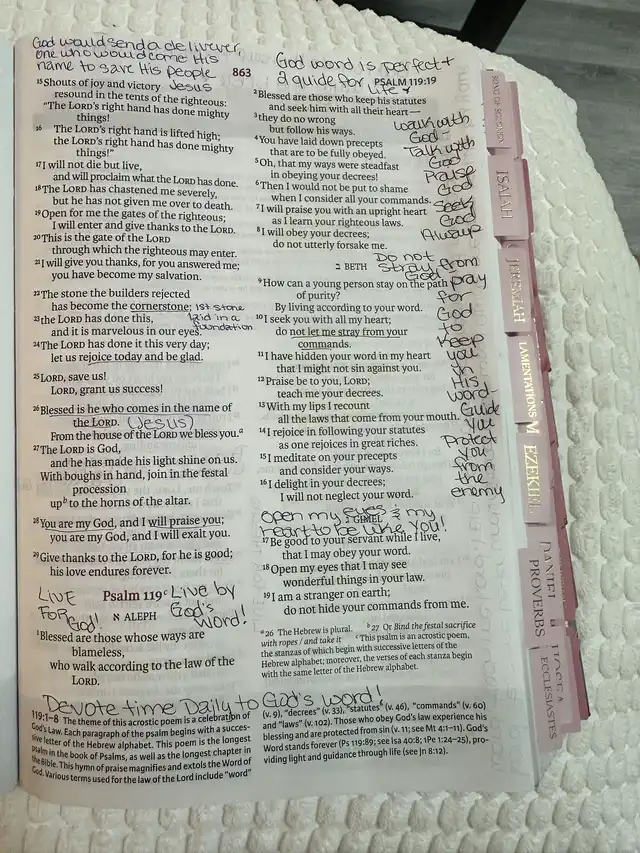 God would send a deliverer,
one who would come His
name to save His people
Jesus
863
God word is perfect +
a guide for
life
PSALM 119:19
15 Shouts of joy and victory
resound in the tents of the righteous:
"The LORD's right hand has done mighty
things!
16 The LORD's right hand is lifted high;
the LORD's right hand has done mighty
things!"
17 I will not die but live,
and will proclaim what the LORD has done.
18 The LORD has chastened me severely,
but he has not given me over to death.
19 Open for me the gates of the righteous;
I will enter and give thanks to the LORD.
20 This is the gate of the LORD
through which the righteous may enter.
21 I will give you thanks, for you answered me;
you have become my salvation.
22 The stone the builders rejected
has become the cornerstone;
1st stone
laid in a
foundation
23 the LORD has done this,
and it is marvelous in our eyes.
24 The LORD has done it this very day;
let us rejoice today and be glad.
25 LORD, save us!
LORD, grant us success!
26 Blessed is he who comes in the name of
the LORD. (Jesus)
From the house of the LORD we bless you.a
27 The LORD is God,
and he has made his light shine on us.
With boughs in hand, join in the festal
procession
up b to the horns of the altar.
28 You are my God, and I will praise you;
you are my God, and I will exalt you.
29 Give thanks to the LORD, for he is good;
his love endures forever.
Psalm 119 c
LIVE
FOR
God!
Live by
God's
Word!
א ALEPH
1 Blessed are those whose ways are
blameless,
who walk according to the law of the
LORD.
2 Blessed are those who keep his statutes
and seek him with all their heart—
3 they do no wrong
but follow his ways.
4 You have laid down precepts
that are to be fully obeyed.
5 Oh, that my ways were steadfast
in obeying your decrees!
6 Then I would not be put to shame
when I consider all your commands.
7 I will praise you with an upright heart
as I learn your righteous laws.
8 I will obey your decrees;
do not utterly forsake me.
walk with
God-
Talk with
God
Praise
God
Seek
God
Always
Do not
stray from
God
ב BETH
9 How can a young person stay on the path
of purity?
By living according to your word.
10 I seek you with all my heart;
do not let me stray from your
commands.
11 I have hidden your word in my heart
that I might not sin against you.
12 Praise be to you, LORD;
teach me your decrees.
13 With my lips I recount
all the laws that come from your mouth.
14 I rejoice in following your statutes
as one rejoices in great riches.
15 I meditate on your precepts
and consider your ways.
16 I delight in your decrees;
I will not neglect your word.
pray
for
God
to
keep
you
in
His
word-
Guide
you
Protect
you
from
the
enemy
Open my eyes & my
heart to be like You!
ג GIMEL
17 Be good to your servant while I live,
that I may obey your word.
18 Open my eyes that I may see
wonderful things in your law.
19 I am a stranger on earth;
do not hide your commands from me.
a 26 The Hebrew is plural. b 27 Or Bind the festal sacrifice
with ropes / and take it c This psalm is an acrostic poem,
the stanzas of which begin with successive letters of the
Hebrew alphabet; moreover, the verses of each stanza begin
with the same letter of the Hebrew alphabet.
Devote time Daily to God's word!
119:1–8 The theme of this acrostic poem is a celebration of
God's Law. Each paragraph of the psalm begins with a succes-
sive letter of the Hebrew alphabet. This poem is the longest
psalm in the book of Psalms, as well as the longest chapter in
the Bible. This hymn of praise magnifies and extols the Word of
God. Various terms used for the law of the LORD include "word"
(v. 9), "decrees" (v. 33), "statutes" (v. 46), "commands" (v. 60)
and "laws" (v. 102). Those who obey God's law experience his
blessing and are protected from sin (v. 11; see Mt 4:1–11). God's
Word stands forever (Ps 119:89; see Isa 40:8; 1Pe 1:24–25), pro-
viding light and guidance through life (see Jn 8:12).
SONG OF SOLOMON
ISAIAH
JEREMIAH
LAMENTATIONS
EZEKIEL
DANIEL
PROVERBS
ECCLESIASTES